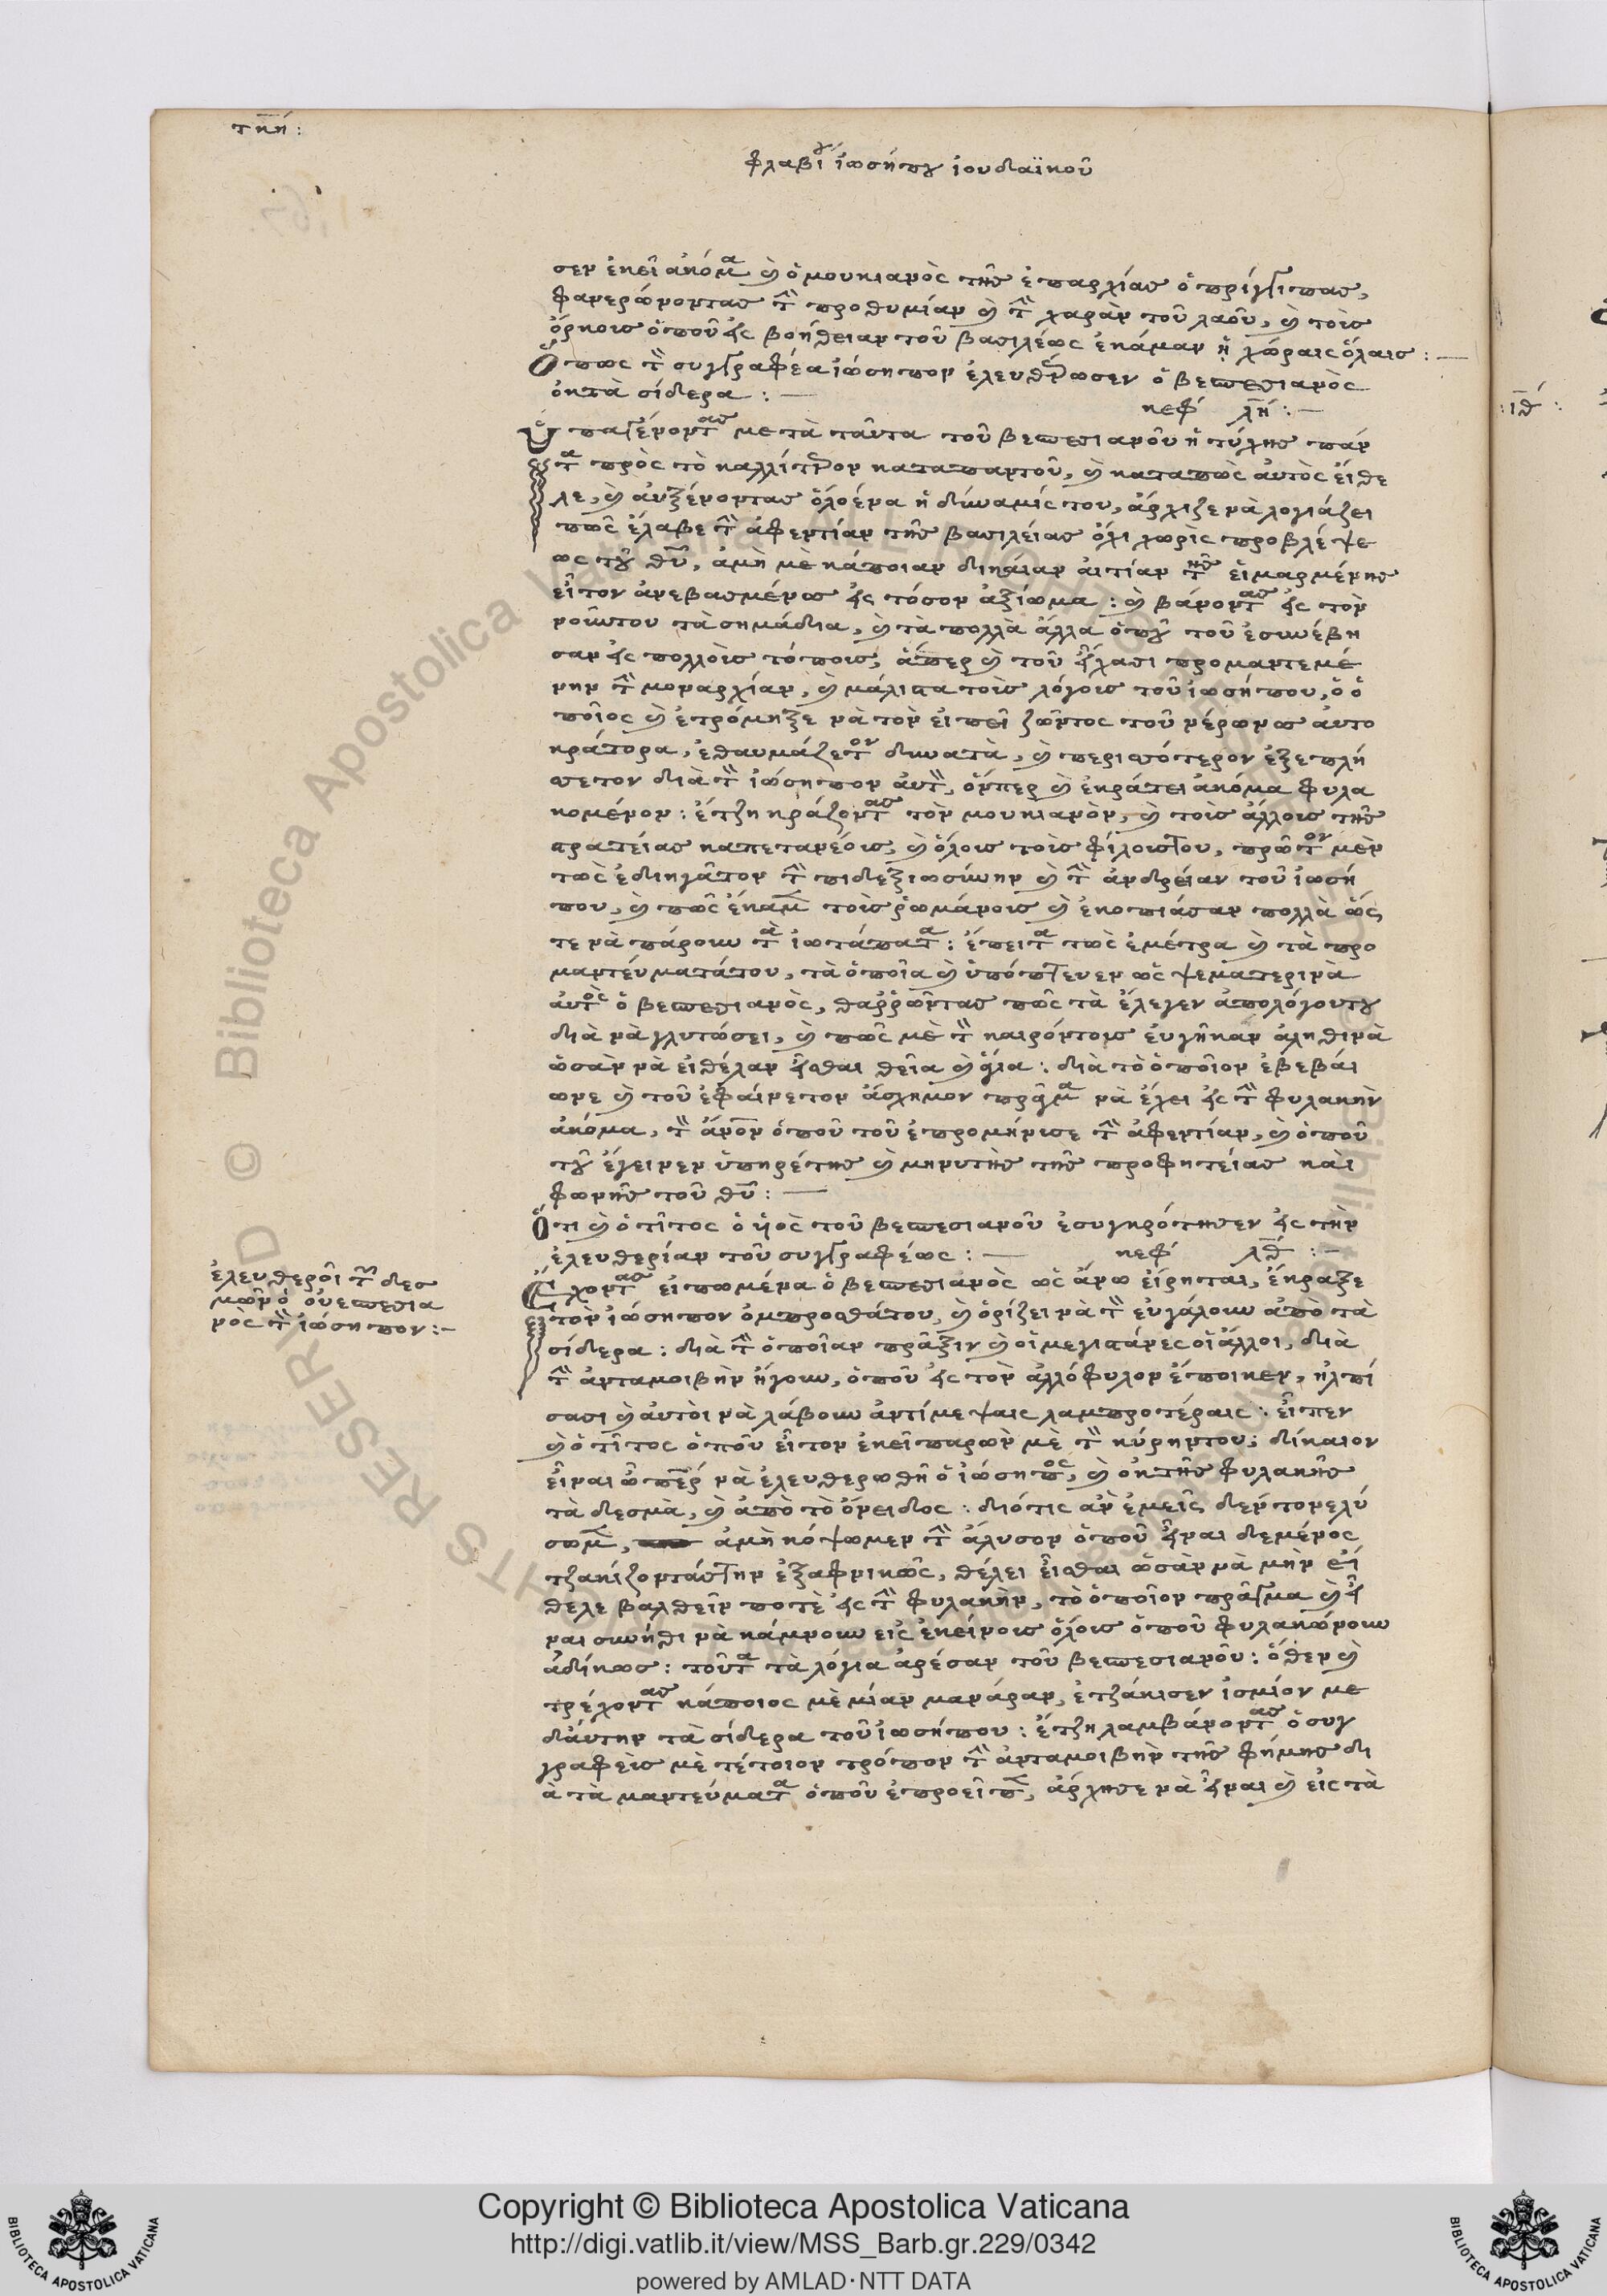 τηή:
φλαβίου ἰωσήπου ἰουδαϊκοῦ
σεν ἐκεῖ ἀκόμα καὶ ὁ μουκιανὸς τῆς ἐπαρχίας ὁ πρίγγιπας,
φανερώνοντας τὴν προθυμίαν καὶ τὴν χαρὰν τοῦ λαοῦ, καὶ τοὶς
ὅρκοις ὁποῦ εἰς βοήθειαν τοῦ βασιλέως ἐκάμαν ἡ χώραις ὅλαις : —
Ὅπως τὸν συγγραφέα ἰώσηπον ἐλευθέρωσεν ὁ βεσπεσιανὸς
ὀκτὰ σίδερα : —
κεφ λη : —
μετὰ ταῦτα τοῦ βεσπεσιανοῦ ἡ τύχης πάν
τα πρὸς τὸ καλλίτερον καταπαντοῦ, καὶ καταπὼς ἀυτὸς εἴθε
λε, καὶ ἀυξένοντας ὁλοένα ἡ δύναμίς του, ἀρχιζε νὰ λογιάζει
πῶς ἔλαβε τὴν ἀφεντίαν τῆς βασιλείας ὄχι χωρὶς προβλέψε
ως τοῦ θεοῦ, ἀμὴ μὲ κάποιαν δικαίαν ἀιτίαν τῆς εἱμαρμένης
εἶτον ἀνεβασμένος εἰς τόσον ἀξίωμα : καὶ βάνοντας εἰς τὸν
νοῦντου τὰ σημάδια, καὶ τὰ πολλὰ ἄλλα ὁποῦ τοῦ ἐσυνέβη
σαν εἰς πολλοὶς τόποις, ἅπερ καὶ τοῦ εἴχασι προμαντεμέ
νην τὴν μοναρχίαν, καὶ μάλιστα τοὶς λόγοις τοῦ ἰωσήπου, ὁ ὁ
ποῖος καὶ ἐτρόμηξε νὰ τὸν εἰπεῖ ζῶντος τοῦ νέρωνος ἀυτο
κράτορα, ἐθαυμάζετον δυνατὰ, καὶ περισσότερον ἐξεπλή
σετον διὰ τὸν ἰώσηπον ἀυτὸν, ὅνπερ καὶ ἐκράτει ἀκόμα φυλα
κομένον : ἔτζη κράζοντας τὸν μουκιανὸν, καὶ τοὶς ἄλλοις τῆς
στρατείας καπετανέοις, καὶ ὅλοις τοὶς φίλοιςτου, πρῶτον μὲν
τὼς ἐδιηγᾶτον τὴν πιδεξιωσύνην καὶ τὴν ἀνδρείαν τοῦ ἰωσή
που, καὶ πῶς ἔκαμε τοὶς ῥωμάνοις καὶ ἐκοπιάσαν πολλὰ ὥς
τε νὰ πάρουν τὰ ἰωτάπατα : ἔπειτα τὼς ἐμέτρα καὶ τὰ προ
μαντεύματάτου, τὰ ὁποῖα καὶ ὑπόπτευεν ὡς ψεματερινὰ
ἀυτὸς ὁ βεσπεσιανὸς, θαῤῥῶντας πῶς τὰ ἔλεγεν ἀπολόγουντου
διὰ νὰ γλυτώσει, καὶ πῶς μὲ τὸν καιρόντοις ἐυγῆκαν ἀληθινὰ
ὡσὰν νὰ εἰθέλαν εἶσθαι θεῖα καὶ ἅγια : διὰ τὸ ὁποῖον ἐβεβαί
ωνε καὶ τοῦ ἐφαίνετον ἄσχημον πρᾶγμα νὰ ἔχει εἰς τὴν φυλακὴν
ἀκόμα, τὸν ἄνθρωπον ὁποῦ τοῦ ἐπρομήνισε τὴν ἀφεντίαν, καὶ ὁποῦ
τοῦ ἔγεινεν ὑπηρέτης καὶ μηνυτὴς τῆς προφητείας καὶ
φωνῆς τοῦ θεοῦ : —
Ὅτι καὶ ὁ τῖτος ὁ ὑιὸς τοῦ βεσπεσιανοῦ ἐσυγκρότησεν εἰς τὴν
ἐλευθερίαν τοῦ συγγραφέως : — κεφ λθ : —
ἐλευθεροῖ τῶν δεσ
μῶν ὁ οὐεσπεσια
νὸς τὸν ἰώσηπον : –
Ἔχοντας εἰπωμένα ὁ βεσπεσιανὸς ὡς ἄνω εἴρηται, ἔκραξε
τὸν ἰώσηπον ὀμπροσθάτου, καὶ ὁρίζει νὰ τὸν ἐυγάλουν ἀπὸ τὰ
σίδερα : διὰ τὴν ὁποῖαν πρᾶξιν καὶ οἱ μεγιστάνες οἱ ἄλλοι, διὰ
τὴν ἀνταμοιβὴν ἤγουν, ὁποῦ εἰς τὸν ἀλλόφυλον ἔποικεν, ἠλπί
σασι καὶ ἀυτοὶ νὰ λάβουν ἀντίμεψαις λαμπροτέραις : εἶπεν
καὶ ὁ τῖτος ὁποῦ εἶτον ἐκεῖ παρὼν μὲ τὸν κύρηντου; δίκαιον
εἶναι ὦ πάτερ νὰ ἐλευθερωθῆ ὁ ἰώσηπος, καὶ ὀκτῆς φυλακῆς
τὰ δεσμὰ, καὶ ἀπὸ τὸ ὄνειδος : διότις ἀν ἐμεῖς δέν τονελύ
σωμε, ἀμὴ κόψωμεν τὴν ἄλυσον ὁποῦ εἶναι δεμένος
τζακίζοντάςτην ἐξαφνικῶς, θέλει εἶσθαι ὡσὰν νὰ μὴν εἴ
θελε βαλθεῖν ποτὲ εἰς τὴν φυλακὴν, τὸ ὁποῖον πρᾶγμα καὶ εἶ
ναι συνήθι νὰ κάμνουν εἰς ἐκείνοις ὅλοις ὁποῦ φυλακώνουν
ἀδίκως : τοῦτα τὰ λόγια ἀρέσαν τοῦ βεσπεσιανοῦ : ὅθεν καὶ
τρέχοντας κάποιος μὲ μίαν μανάραν, ἐτζάκισεν ἰσμίον με
δἀυτην τὰ σίδερα τοῦ ἰωσήπου : ἔτζη λαμβάνοντας ὁ συγ
γραφεὶς μὲ τέτοιον τρόπον τὴν ἀνταμοιβὴν τῆς φήμης δι
ὰ τὰ μαντεύματα ὁποῦ ἐπροεῖπε, ἄρχησε νὰ εἶναι καὶ εἰς τὰ
:ιθ :
Copyright © Biblioteca Apostolica Vaticana
http://digi.vatlib.it/view/MSS_Barb.gr.229/0342
powered by AMLAD·NTT DATA